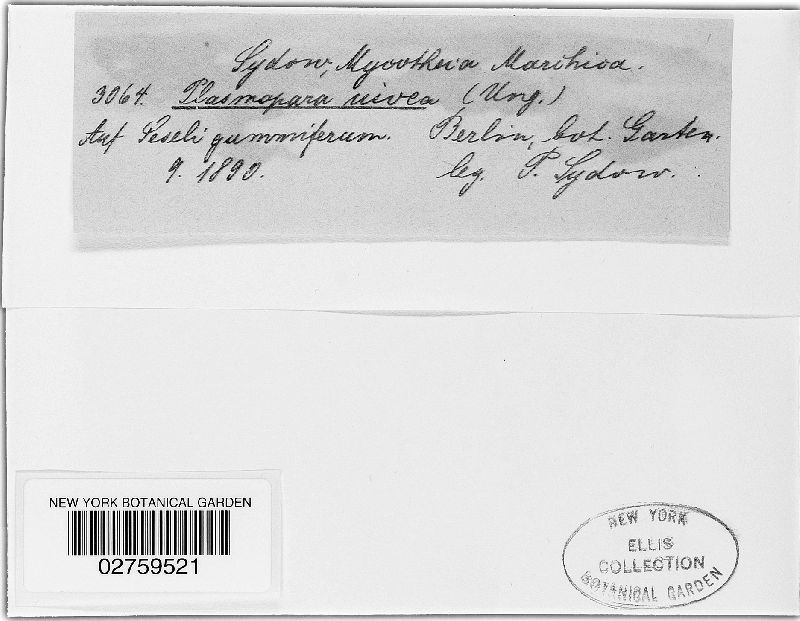 Sydow, Mycotheca Marchica.
3064. Plasmopara nivea (Ung.)
Auf Seseli gummiferum. Berlin, bot. Garten.
9. 1890. leg. P. Sydow.
NEW YORK BOTANICAL GARDEN
02759521
NEW YORK
ELLIS
COLLECTION
BOTANICAL GARDEN